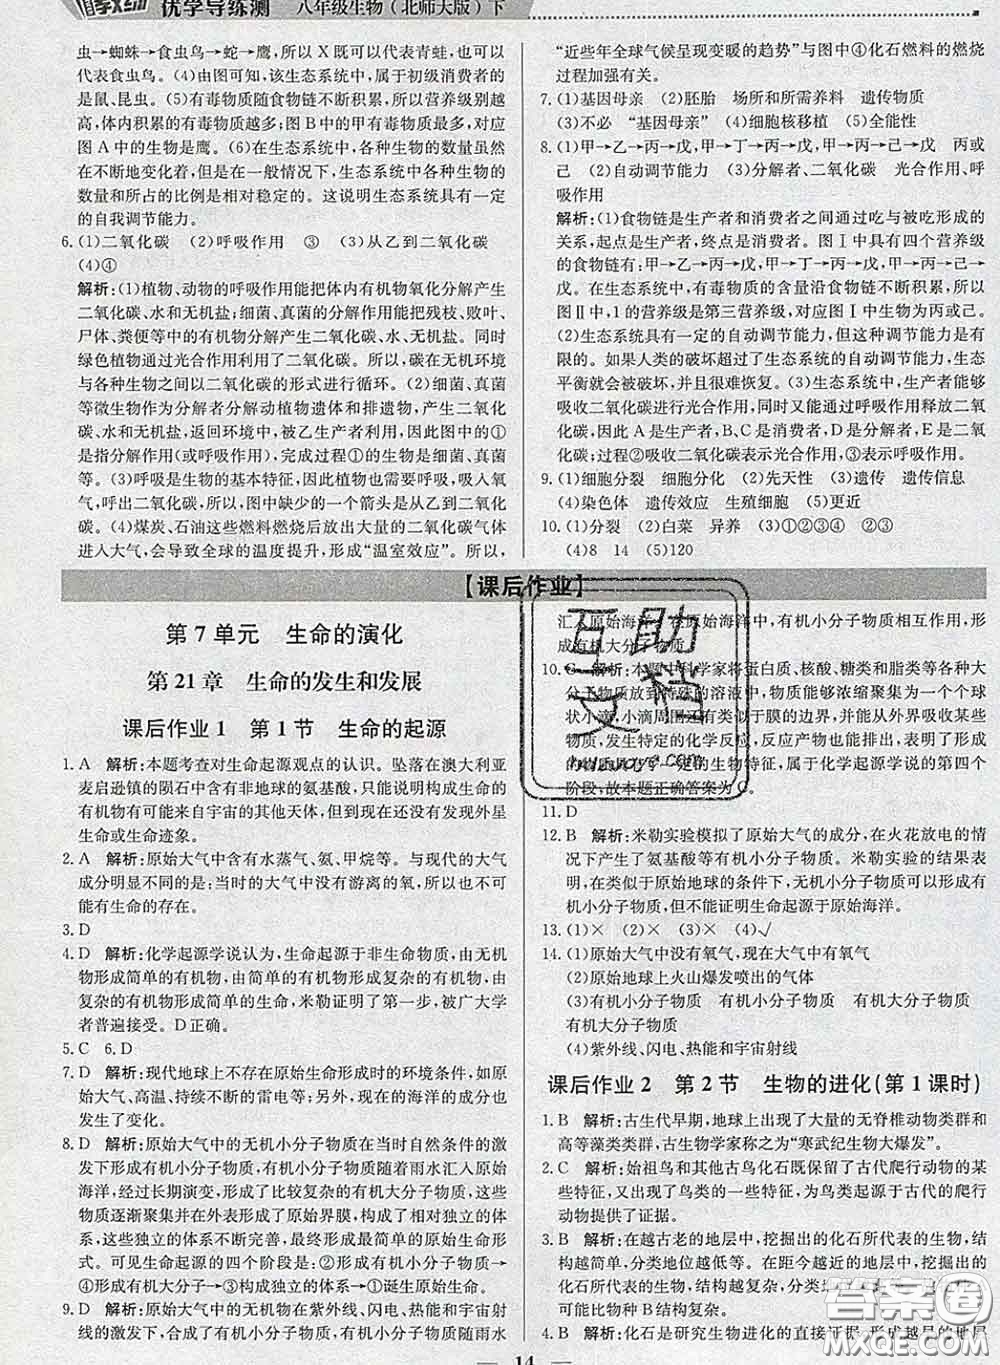 优学导练测 八年级生物(北师大版)下
虫→蜘蛛→食虫鸟→蛇→鹰,所以X既可以代表青蛙,也可以
代表食虫鸟。(4)由图可知,该生态系统中,属于初级消费者的
是鼠、昆虫。(5)有毒物质随食物链不断积累,所以营养级别越
高,体内积累的有毒物质越多;图B中的甲有毒物质最多,对应
图A中的生物是鹰。(6)在生态系统中,各种生物的数量虽然
在不断地变化着,但是在一般情况下,生态系统中各种生物的
数量和所占的比例是相对稳定的。这说明生态系统具有一定
的自我调节能力。
6.(1)二氧化碳 (2)呼吸作用 ③ (3)从乙到二氧化碳
(4)④
解析:(1)植物、动物的呼吸作用能把体内有机物氧化分解产生
二氧化碳、水和无机盐;细菌、真菌的分解作用能把残枝、败叶、
尸体、粪便等中的有机物分解产生二氧化碳、水、无机盐。同时
绿色植物通过光合作用利用了二氧化碳。所以,碳在无机环境
与各种生物之间以二氧化碳的形式进行循环。(2)细菌、真菌
等微生物作为分解者分解动植物遗体和排遗物,产生二氧化
碳、水和无机盐,返回环境中,被生产者利用,因此图中的①
是指分解作用(或呼吸作用),完成过程①的生物是细菌、真菌。
(3)呼吸是生物的基本特征,因此植物也能够进行呼吸,吸入氧
气,呼出二氧化碳,因此,图中缺少的一个箭头是从乙到二氧化
碳。(4)煤炭、石油这些燃料燃烧后放出大量的二氧化碳气体
进入大气,会导致全球的温度提升,形成“温室效应”。所以,
“近些年全球气候呈现变暖的趋势”与图中④化石燃料的燃烧
过程加强有关。
7.(1)基因母亲 (2)胚胎 场所和所需养料 遗传物质
(3)不必 “基因母亲” (4)细胞核移植 (5)全能性
8.(1)甲→乙→丙→戊,甲→丁→丙→戊,甲→丁→己 丙或
己 (2)自动调节能力 (3)分解者、二氧化碳 光合作用、呼
吸作用
解析:(1)食物链是生产者和消费者之间通过吃与被吃形成的
关系,起点是生产者,终点是消费者。图Ⅰ中具有四个营养级
的食物链有:甲→乙→丙→戊,甲→丁→丙→戊,甲→丁→己。
在生态系统中,有毒物质的含量沿食物链不断积累,所以
图Ⅱ中,1的营养级是第三营养级,对应图Ⅰ中生物为丙或己。
(2)生态系统具有一定的自动调节能力,但这种能力是有
限的。如果人类的破坏超过了生态系统的自动调节能力,生态
平衡就会被破坏,并且很难恢复。(3)生态系统中,生产者能够
吸收二氧化碳进行光合作用,同时又能通过呼吸作用释放二氧
化碳,因此A是生产者,B、C是消费者,D是分解者,E是二氧化
碳;过程②吸收二氧化碳表示光合作用,③表示呼吸作用。
9.(1)细胞分裂 细胞分化 (2)先天性 (3)遗传 遗传信息
(4)染色体 遗传效应 生殖细胞 (5)更近
10.(1)分裂 (2)白菜 异养 (3)①②③④ ②③
(4)8 14 (5)120
【课后作业】
第7单元 生命的演化
第21章 生命的发生和发展
课后作业1 第1节 生命的起源
1. A 解析:本题考查对生命起源观点的认识。坠落在澳大利亚
麦启逊镇的陨石中含有非地球的氨基酸,只能说明构成生命的
有机物有可能来自宇宙的其他天体,但却没有发现外星
生命或生命迹象。
2. A 解析:原始大气中含有水蒸气、氨、甲烷等。与现代的大气
成分明显不同的是:当时的大气中没有游离的氧,所以不可
能有生命的存在。
3. D
4. D 解析:化学起源学说认为,生命起源于非生命物质,由无机
物形成简单的有机物,由简单的有机物形成复杂的有机物,由
复杂的有机物形成简单的生命,米勒证明了第一步,被广大学
者普遍接受。D正确。
5. C 6. D
7. D 解析:现代地球上不存在原始生命形成时的环境条件,如
原始大气、高温、持续不断的雷电等;另外,现在的海洋的成
分也发生了改变。
8. D 解析:原始大气中的无机小分子物质在当时自然条件的激
发下形成有机小分子物质,有机小分子物质随着雨水汇入原始
海洋,经过长期演变,形成了比较复杂的有机大分子物质,这些
物质逐渐聚集并在外表形成了原始界膜,构成了独立的体系,
这些独立的体系不断完善,最终形成最简单的生命形式——原始
生命。可见生命起源的步骤是:②形成有机小分子物质→
④形成有机大分子→③构成独立的体系→①诞生原始生命。
9. D 解析:原始大气中的无机小分子物质在紫外线、闪电和宇宙射线
的激发下,合成了有机小分子物质,有机小分子物质随雨水
汇入原始海洋,在原始海洋中,有机小分子物质相互作用,形
成有机大分子物质。
10. C 解析:本题中科学家将蛋白质、核酸、糖类和脂类等各种大
分子物质放到特殊的溶液中,大分子物质能够浓缩聚集为一个个球
状小滴,小滴周围有类似于膜的边界,并能从外界吸收某些
物质,发生特定的化学反应,反应产物也能排出,说明聚集
的小滴具有了一定的生物特征,属于化学起源学说的第四个
阶段,故本题正确答案为C。
11. D
12. B 解析:米勒实验模拟了原始大气的成分,在火花放电的情
况下产生了氨基酸等有机小分子物质。米勒实验的结果表
明,在类似于原始地球的条件下,无机小分子物质可以形成有机
小分子物质,但不能证明生命起源于原始海洋。
13.(1)× (2)× (3)× (4)√
14.(1)原始大气中没有氧气,现在大气中有氧气
(2)原始地球上火山爆发喷出的气体
(3)有机小分子物质 有机小分子物质 有机大分子物质
有机大分子物质
(4)紫外线、闪电、热能和宇宙射线
课后作业2 第2节 生物的进化(第1课时)
1. B 解析:古生代早期,地球上出现了大量的无脊椎动物类群和
高等藻类类群,古生物学家称之为“寒武纪生物大爆发”。
2. C 解析:始祖鸟和其他古鸟化石既保留了古代爬行动物的某
些特征,又出现了鸟类的一些特征,为鸟类起源于古代的爬行
动物提供了证据。
3. B 解析:在越古老的地层中,挖掘出的化石所代表的生物,
结构越简单。在距今越近的地层中,挖掘出的
化石所代表的生物,结构越复杂。所以,生物A
可能比生物B结构复杂。
4. B 解析:化石是研究生物进化的直接证据,形成越早的地层
14
互助文档
hdzuoye.com
答案圈
MXQE.COM